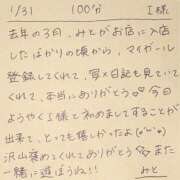 1/31 100分 I様
去年の3月、みとがお店に入店
したばかりの頃から、マイガール
登録してくれて、写メ日記も見てい
てくれて、本当にありがとう♡今日
ようやくI様と初めましてすることが
出来て、とっても嬉しかったよ(*'ω'*)
沢山褒めてくれてありがとう♡また
一緒に遊ぼうね!! みと